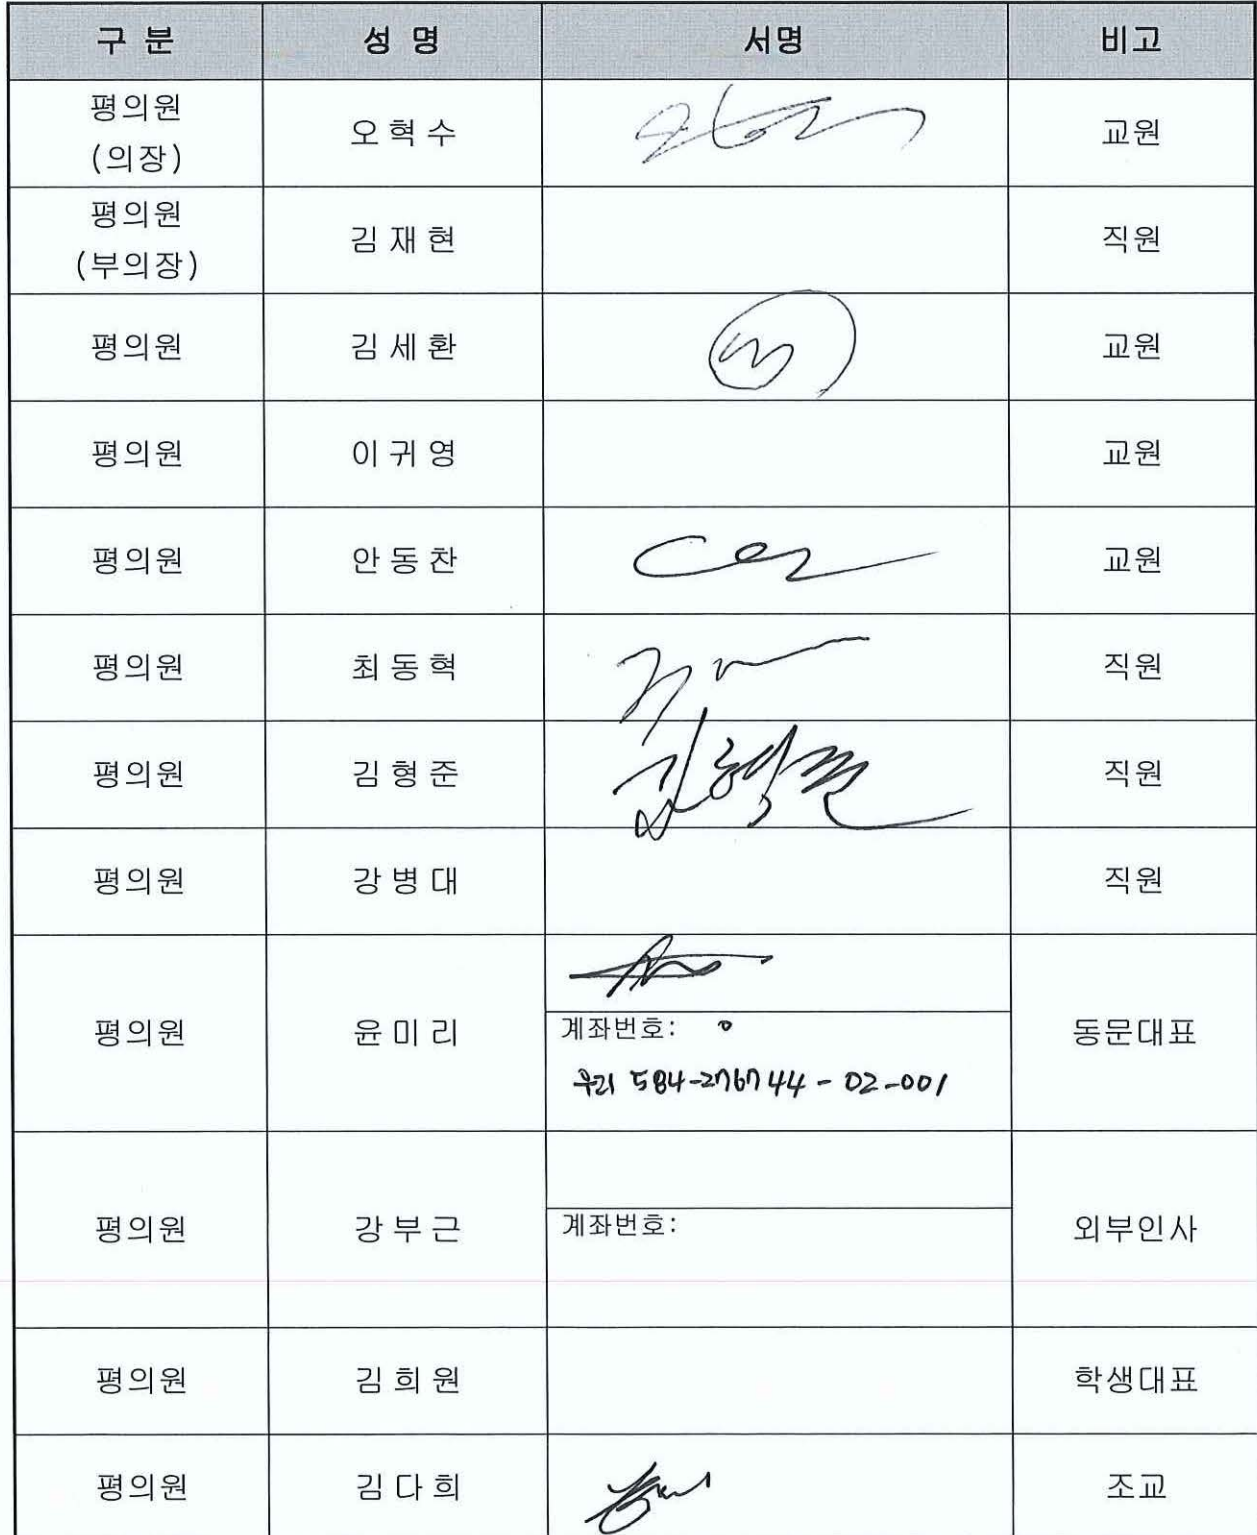 구 분 성 명 서명 비고
평의원
(의장) 오 혁 수 교원
평의원
(부의장) 김 재 현 직원
평의원 김 세 환 교원
평의원 이 귀 영 교원
평의원 안 동 찬 교원
평의원 최 동 혁 직원
평의원 김 형 준 직원
평의원 강 병 대 직원
평의원 윤 미 리 동문대표
계좌번호:
우리 584-276744-02-001
평의원 강 부 근 외부인사
계좌번호:
평의원 김 희 원 학생대표
평의원 김 다 희 조교